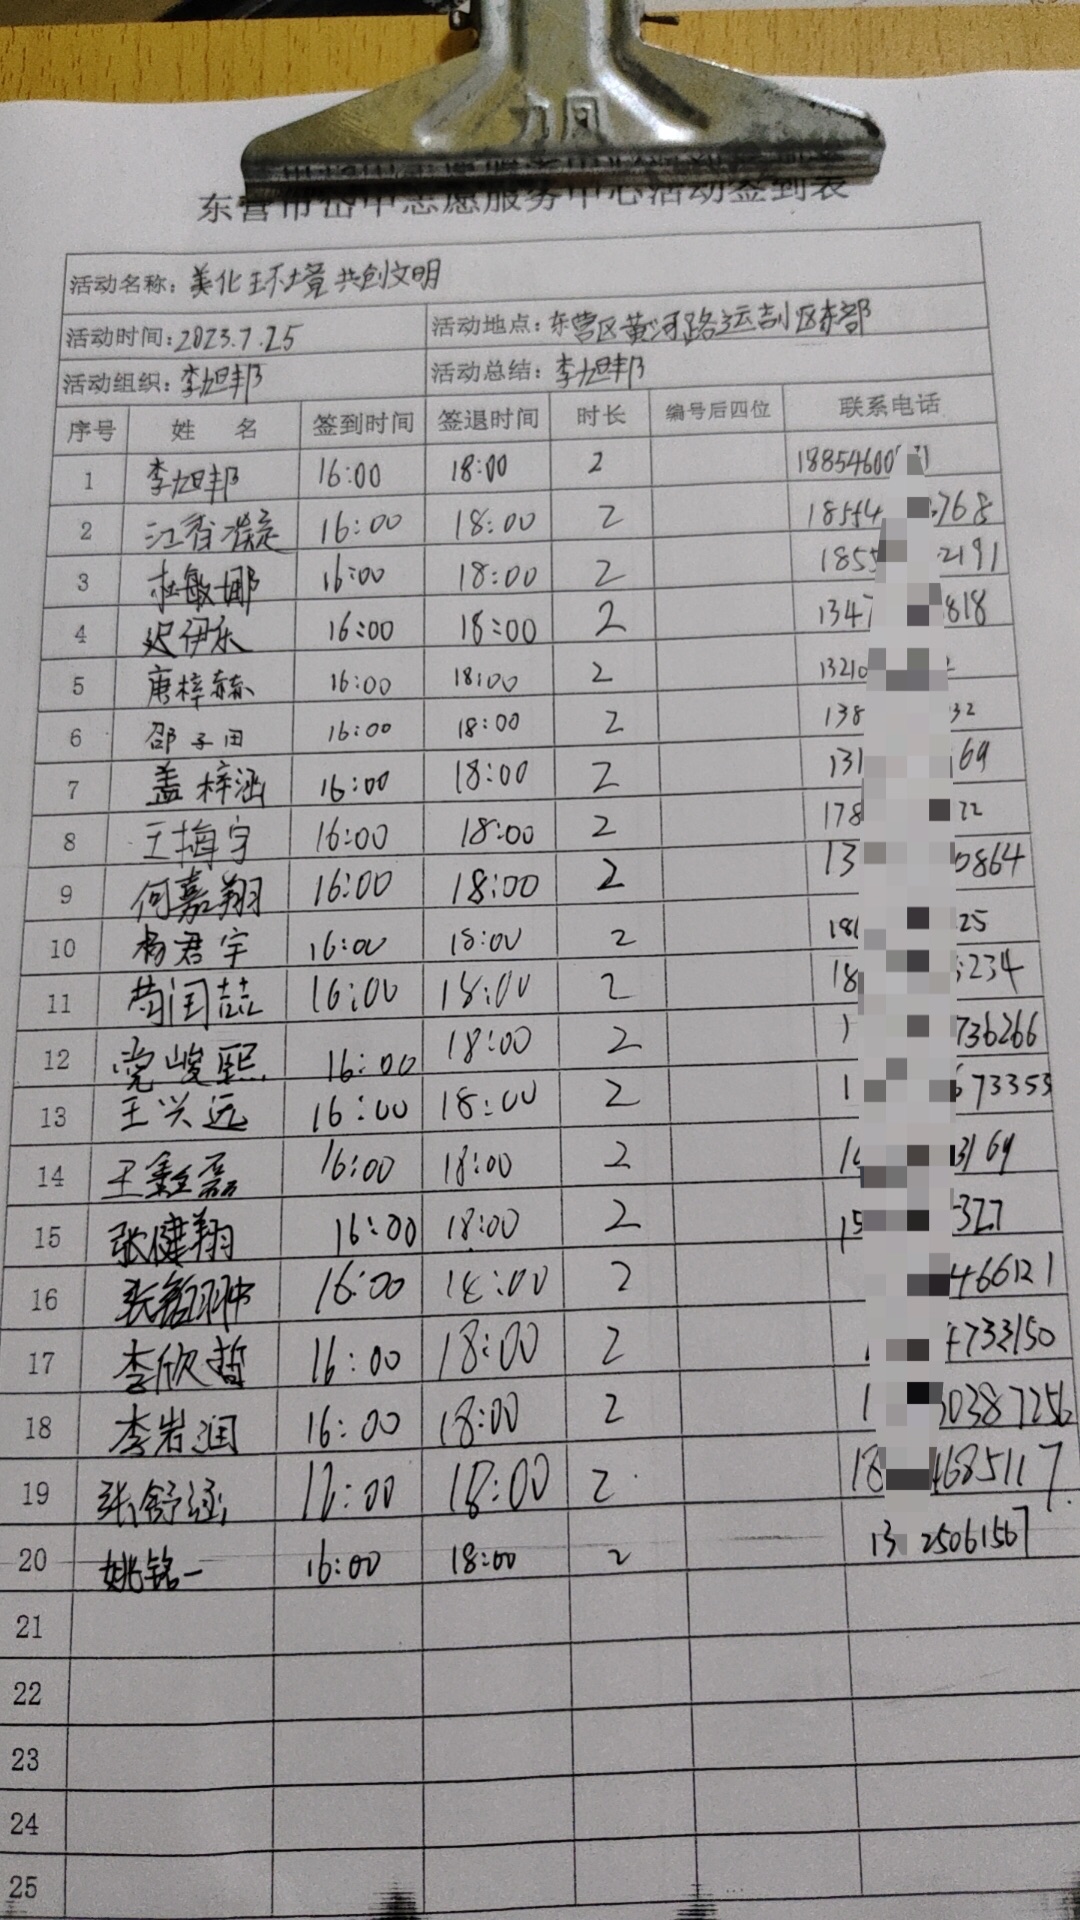 力风
东营市岱中志愿服务中心活动签到表
活动名称：美化环境 共创文明
活动时间：2023.7.25 活动地点：东营区黄河路运刮区东部
活动组织：李旭邦 活动总结：李旭邦
序号 姓名 签到时间 签退时间 时长 编号后四位 联系电话
1 李旭邦 16:00 18:00 2 18854600
2 江香凝 16:00 18:00 2 1854 768
3 杜敏娜 16:00 18:00 2 185 2191
4 迟伊乐 16:00 18:00 2 134 818
5 唐梓赫 16:00 18:00 2 13210
6 邵子田 16:00 18:00 2 138 32
7 盖梓涵 16:00 18:00 2 131 69
8 王梅宁 16:00 18:00 2 178 22
9 何嘉翔 16:00 18:00 2 13 0864
10 杨君宇 16:00 18:00 2 18 25
11 苟闰喆 16:00 18:00 2 18 234
12 党峻熙 16:00 18:00 2 1 736266
13 王兴远 16:00 18:00 2 1 673353
14 王鑫磊 16:00 18:00 2 3169
15 张健翔 16:00 18:00 2 15 327
16 张铭翀 16:00 18:00 2 466121
17 李欣哲 16:00 18:00 2 4733150
18 李岩润 16:00 18:00 2 1 0387256
19 张舒涵 16:00 18:00 2 18 4685117
20 姚铭一 16:00 18:00 2 13 25061567
21
22
23
24
25